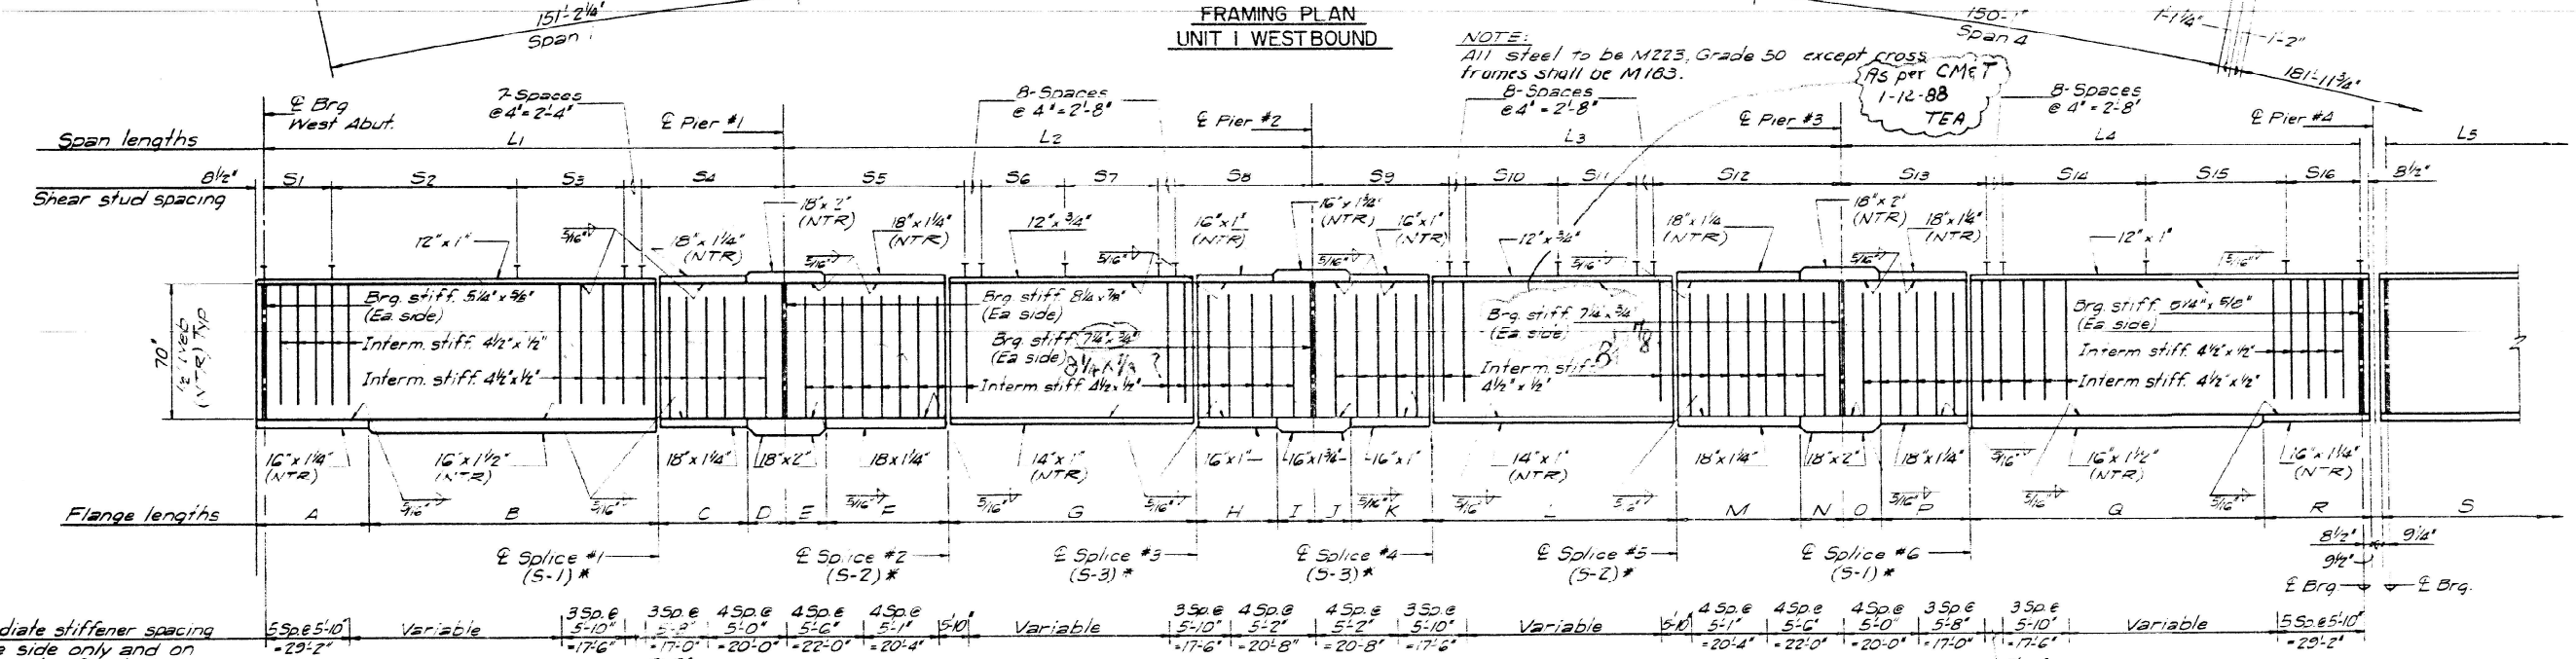 151'-2¼"
Span 1
FRAMING PLAN
UNIT 1 WESTBOUND
NOTE:
All steel to be M223, Grade 50 except cross
frames shall be M183.
As per CMET
1-12-88
TEA
150'-1"
Span 4
1'-1¼"
1'-2"
181'-11¾"
℄ Brg
West Abut.
7-Spaces
@ 4" = 2'-4"
℄ Pier #1
8-Spaces
@ 4" = 2'-8"
℄ Pier #2
8-Spaces
@ 4" = 2'-8"
℄ Pier #3
8-Spaces
@ 4" = 2'-8"
℄ Pier #4
Span lengths L1 L2 L3 L4 L5
8½" S1 S2 S3 S4 S5 S6 S7 S8 S9 S10 S11 S12 S13 S14 S15 S16 8½"
Shear stud spacing
12" x 1"
5/16"
18" x 1¼"
(NTR)
18" x 2"
(NTR)
5/16"
18" x 1¼"
(NTR)
12" x ¾"
5/16"
16" x 1"
(NTR)
16" x 1¾"
(NTR)
5/16"
16" x 1"
(NTR)
12" x ¾"
5/16"
18" x 1¼
(NTR)
18" x 2"
(NTR)
5/16"
18" x 1¼"
(NTR)
12" x 1"
5/16"
70"
½" Web
(NTR) Typ
Brg. stiff. 5¼" x 5/8"
(Ea side)
Interm. stiff. 4½" x ½"
Interm. stiff. 4½" x ½"
Brg. stiff. 8¼ x 7/8"
(Ea side)
Brg. stiff. 7¼ x ¾"
(Ea side)
8¼ x 7/8 ?
Interm stiff 4½ x ½"
Brg. stiff. 7¼ x ¾"
(Ea side)
Interm. stiff.
4½" x ½"
Brg. stiff. 5¼" x 5/8"
(Ea side)
Interm stiff. 4½" x ½"
Interm stiff. 4½" x ½"
16" x 1¼"
(NTR)
16" x 1½"
(NTR)
18" x 1¼"
18" x 2"
18 x 1¼"
14" x 1"
(NTR)
16" x 1"
16 x 1¾"
16" x 1"
14" x 1"
(NTR)
18" x 1¼"
18" x 2"
18" x 1¼"
16" x 1½"
(NTR)
16" x 1¼"
(NTR)
5/16" 5/16" 5/16" 5/16" 5/16" 5/16" 5/16" 5/16" 5/16" 5/16" 5/16" 5/16"
Flange lengths A B C D E F G H I J K L M N O P Q R S
℄ Splice #1
(S-1)*
℄ Splice #2
(S-2)*
℄ Splice #3
(S-3)*
℄ Splice #4
(S-3)*
℄ Splice #5
(S-2)*
℄ Splice #6
(S-1)*
8½" 9¼"
9½"
℄ Brg. ℄ Brg.
diate stiffener spacing
e side only and on
5 Sp.@ 5'-10"
=29'-2"
Variable
3 Sp.@
5'-10"
=17'-6"
3 Sp.@
5'-8"
=17'-0"
4 Sp.@
5'-0"
=20'-0"
4 Sp.@
5'-6"
=22'-0"
4 Sp.@
5'-1"
=20'-4"
5'-10"
Variable
3 Sp.@
5'-10"
=17'-6"
4 Sp.@
5'-2"
=20'-8"
4 Sp.@
5'-2"
=20'-8"
3 Sp.@
5'-10"
=17'-6"
Variable
5'-10
4 Sp.@
5'-1"
=20'-4"
4 Sp.@
5'-6"
=22'-0"
4 Sp.@
5'-0"
=20'-0"
3 Sp.@
5'-8"
=17'-0"
3 Sp.@
5'-10"
=17'-6"
Variable
5 Sp.@ 5'-10"
=29'-2"